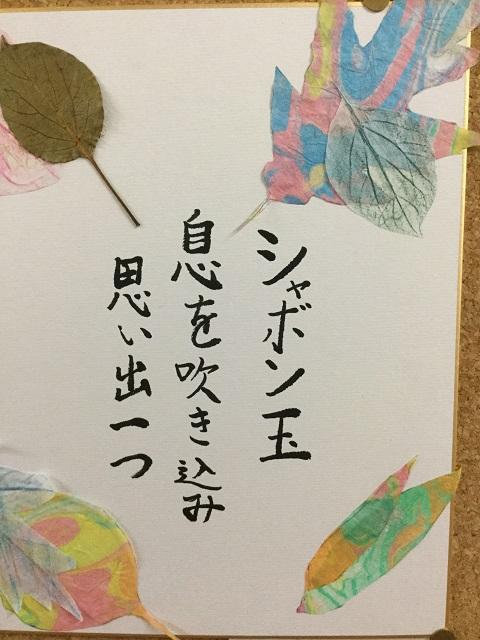 シャボン玉
息を吹き込み
思い出一つ